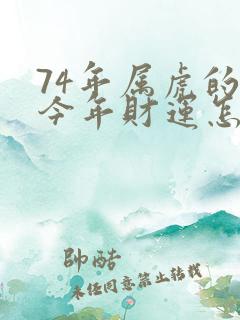 74年属虎的
今年财运怎
帥酷
未经同意禁止转载